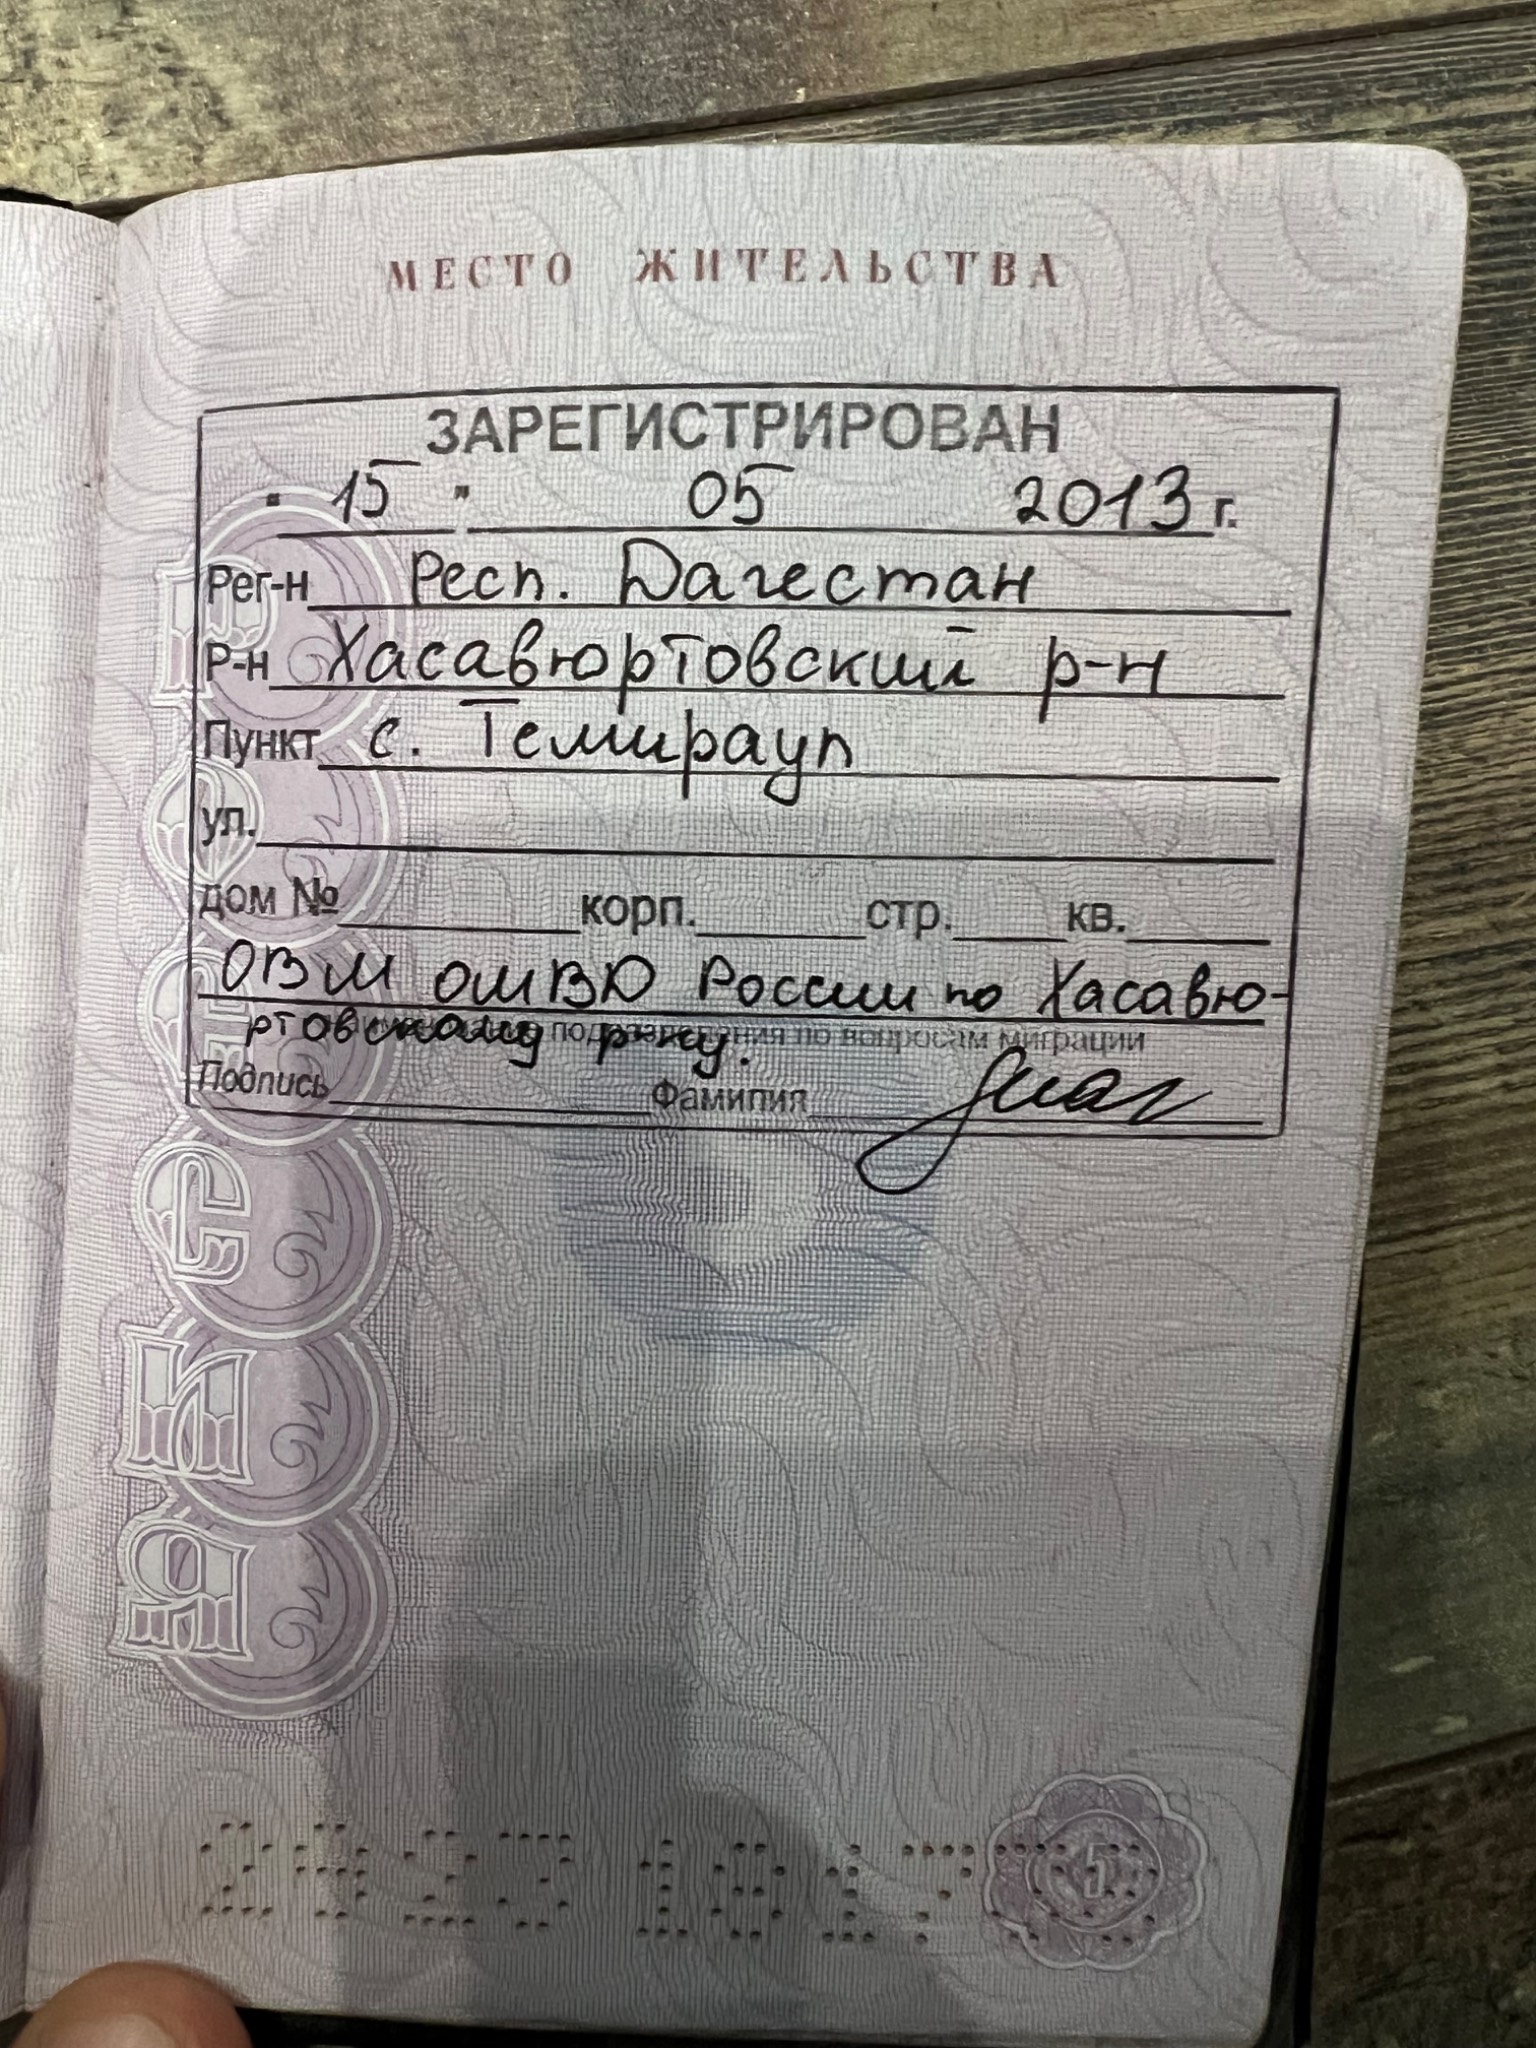 МЕСТО ЖИТЕЛЬСТВА
ЗАРЕГИСТРИРОВАН
" 15 " 05 2013 г.
Рег-н Респ. Дагестан
Р-н Хасавюртовский р-н
Пункт с. Темираул
ул.
дом № корп. стр. кв.
ОВМ ОМВД России по Хасавю-
ртовскому р-ну.
наименование подразделения по вопросам миграции
Подпись Фамилия
РОССИЯ
5